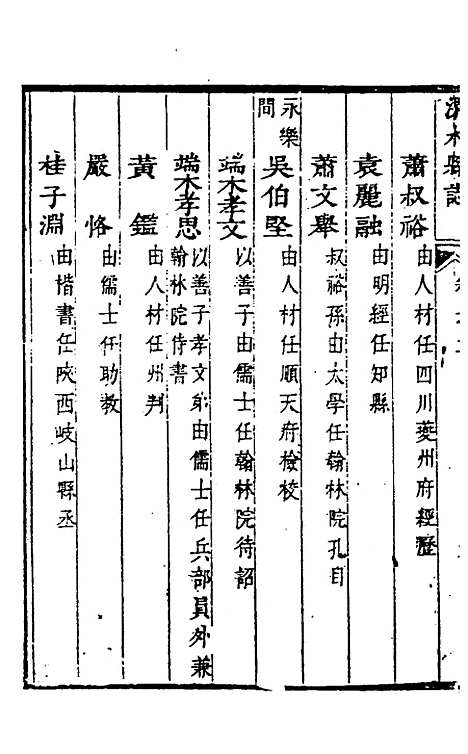 水縣志
蕭叔裕 由人材任四川夔州府經歷
袁麗融 由明經任知縣
蕭文舉 叔裕孫由太學任翰林院孔目
永樂間
吳伯堅 由人材任順天府檢校
端木孝文 以善子由儒士任翰林院待詔
端木孝思 以善子孝文弟由儒士任兵部員外兼
翰林院侍書
黃鑑 由人材任州判
嚴恪 由儒士任助教
桂子淵 由楷書任陝西岐山縣丞